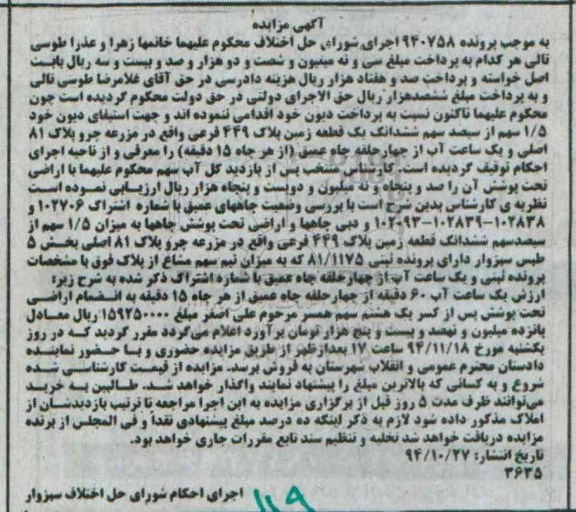 آگهی مزایده
به موجب پرونده ۹۴۰۷۵۸ اجرای شورای حل اختلاف محکوم علیهما خانمها زهرا و عذرا طوسی
تالی هر کدام به پرداخت مبلغ سی و نه میلیون و شصت و دو هزار و صد و بیست و سه ریال بابت
اصل خواسته و پرداخت صد و هفتاد هزار ریال هزینه دادرسی در حق آقای غلامرضا طوسی تالی
و به پرداخت مبلغ ششصدهزار ریال حق الاجرای دولتی در حق دولت محکوم گردیده است چون
محکوم علیهما تاکنون نسبت به پرداخت دیون خود اقدامی ننموده اند و جهت استیفای دیون خود
۱/۵ سهم از سیصد سهم ششدانگ یک قطعه زمین پلاک ۴۴۹ فرعی واقع در مزرعه چرو پلاک ۸۱
اصلی و یک ساعت آب از چهارحلقه چاه عمیق (از هر چاه ۱۵ دقیقه) را معرفی و از ناحیه اجرای
احکام توقیف گردیده است. کارشناس منتخب پس از بازدید کل آب سهم محکوم علیهما با اراضی
تحت پوشش آن را صد و پنجاه و نه میلیون و دویست و پنجاه هزار ریال ارزیابی نموده است
نظریه ی کارشناس بدین شرح است با بررسی وضعیت چاههای عمیق با شماره اشتراک ۱۰۲۷۰۶ و
۱۰۲۸۳۸-۱۰۲۸۳۹-۱۰۲۰۹۳ و دبی چاهها و اراضی تحت پوشش چاهها به میزان ۱/۵ سهم از
سیصدسهم ششدانگ قطعه زمین پلاک ۴۴۹ فرعی واقع در مزرعه چرو پلاک ۸۱ اصلی بخش ۵
طبس سبزوار دارای پرونده ثبتی ۸۱/۱۱۷۵ که به میزان نیم سهم مشاع از پلاک فوق با مشخصات
پرونده ثبتی و یک ساعت آب از چهارحلقه چاه عمیق با شماره اشتراک ذکر شده به شرح زیر:
ارزش یک ساعت آب ۶۰ دقیقه از چهارحلقه چاه عمیق از هر چاه ۱۵ دقیقه به انضمام اراضی
تحت پوشش پس از کسر یک هشتم سهم همسر مرحوم علی اصغر مبلغ ۱۵۹۲۵۰۰۰۰ ریال معادل
پانزده میلیون و نهصد و بیست و پنج هزار تومان برآورد اعلام می‌گردد مقرر گردید که در روز
یکشنبه مورخ ۹۴/۱۱/۱۸ ساعت ۱۷ بعدازظهر از طریق مزایده حضوری و با حضور نماینده
دادستان محترم عمومی و انقلاب شهرستان به فروش برسد. مزایده از قیمت کارشناسی شده
شروع و به کسانی که بالاترین مبلغ را پیشنهاد نمایند واگذار خواهد شد. طالبین به خرید
می‌توانند ظرف مدت ۵ روز قبل از برگزاری مزایده به این اجرا مراجعه تا ترتیب بازدیدشان از
املاک مذکور داده شود لازم به ذکر اینکه ده درصد مبلغ پیشنهادی نقداً و فی المجلس از برنده
مزایده دریافت خواهد شد تخلیه و تنظیم سند تابع مقررات جاری خواهد بود.
تاریخ انتشار: ۹۴/۱۰/۲۷
۳۶۳۵
اجرای احکام شورای حل اختلاف سبزوار
۱۱۹